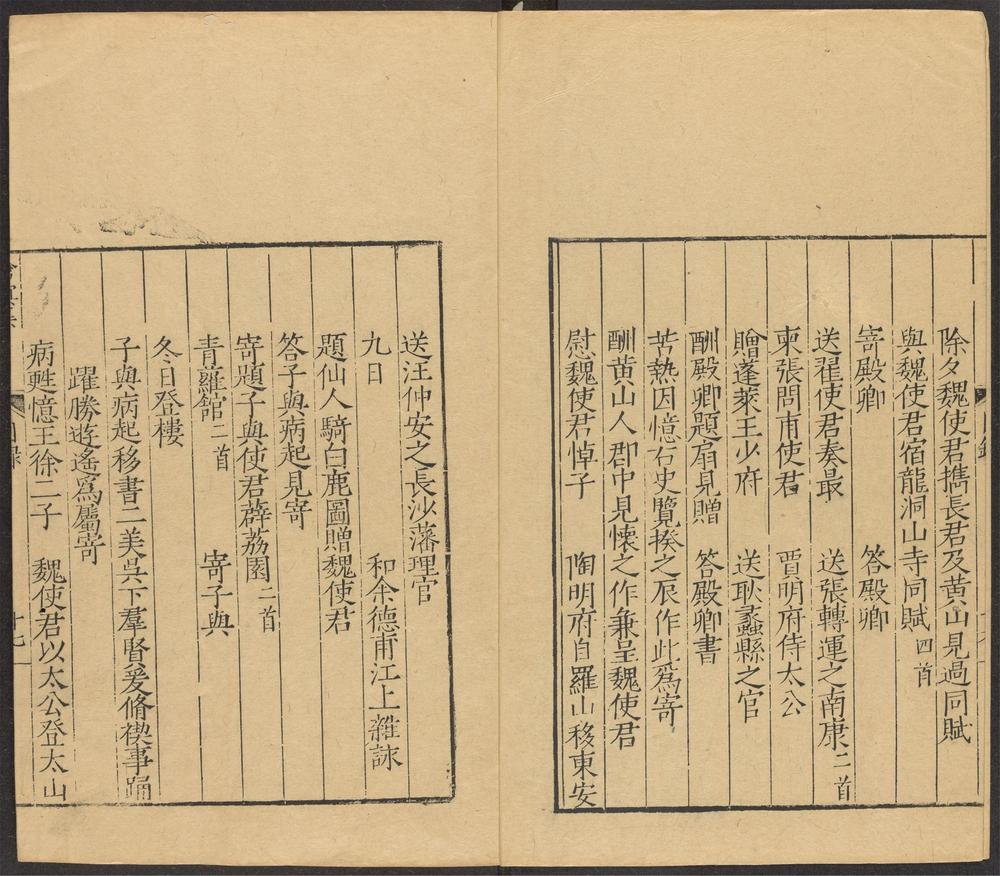 除夕魏使君攜長君及黃山見過同賦
與魏使君宿龍洞山寺同賦四首
寄殿卿　答殿卿
送翟使君奏最　送張轉運之南康二首
柬張問甫使君　賈明府侍太公
贈蓬萊王少府　送耿蠡縣之官
酬殿卿題扇見贈　答殿卿書
苦熱因憶右史覽揆之辰作此為寄
酬黃山人郡中見懷之作兼呈魏使君
慰魏使君悼子　陶明府自羅山移東安
送汪仲安之長沙藩理官
九日　和余德甫江上雜詠
題仙人騎白鹿圖贈魏使君
答子與病起見寄
寄題子與使君薜荔園二首
青蘿館二首　寄子與
冬日登樓
子與病起移書二美吳下羣賢爰脩禊事踊
躍勝遊遙為屬寄
病甦憶王徐二子　魏使君以太公登太山
目錄
十七